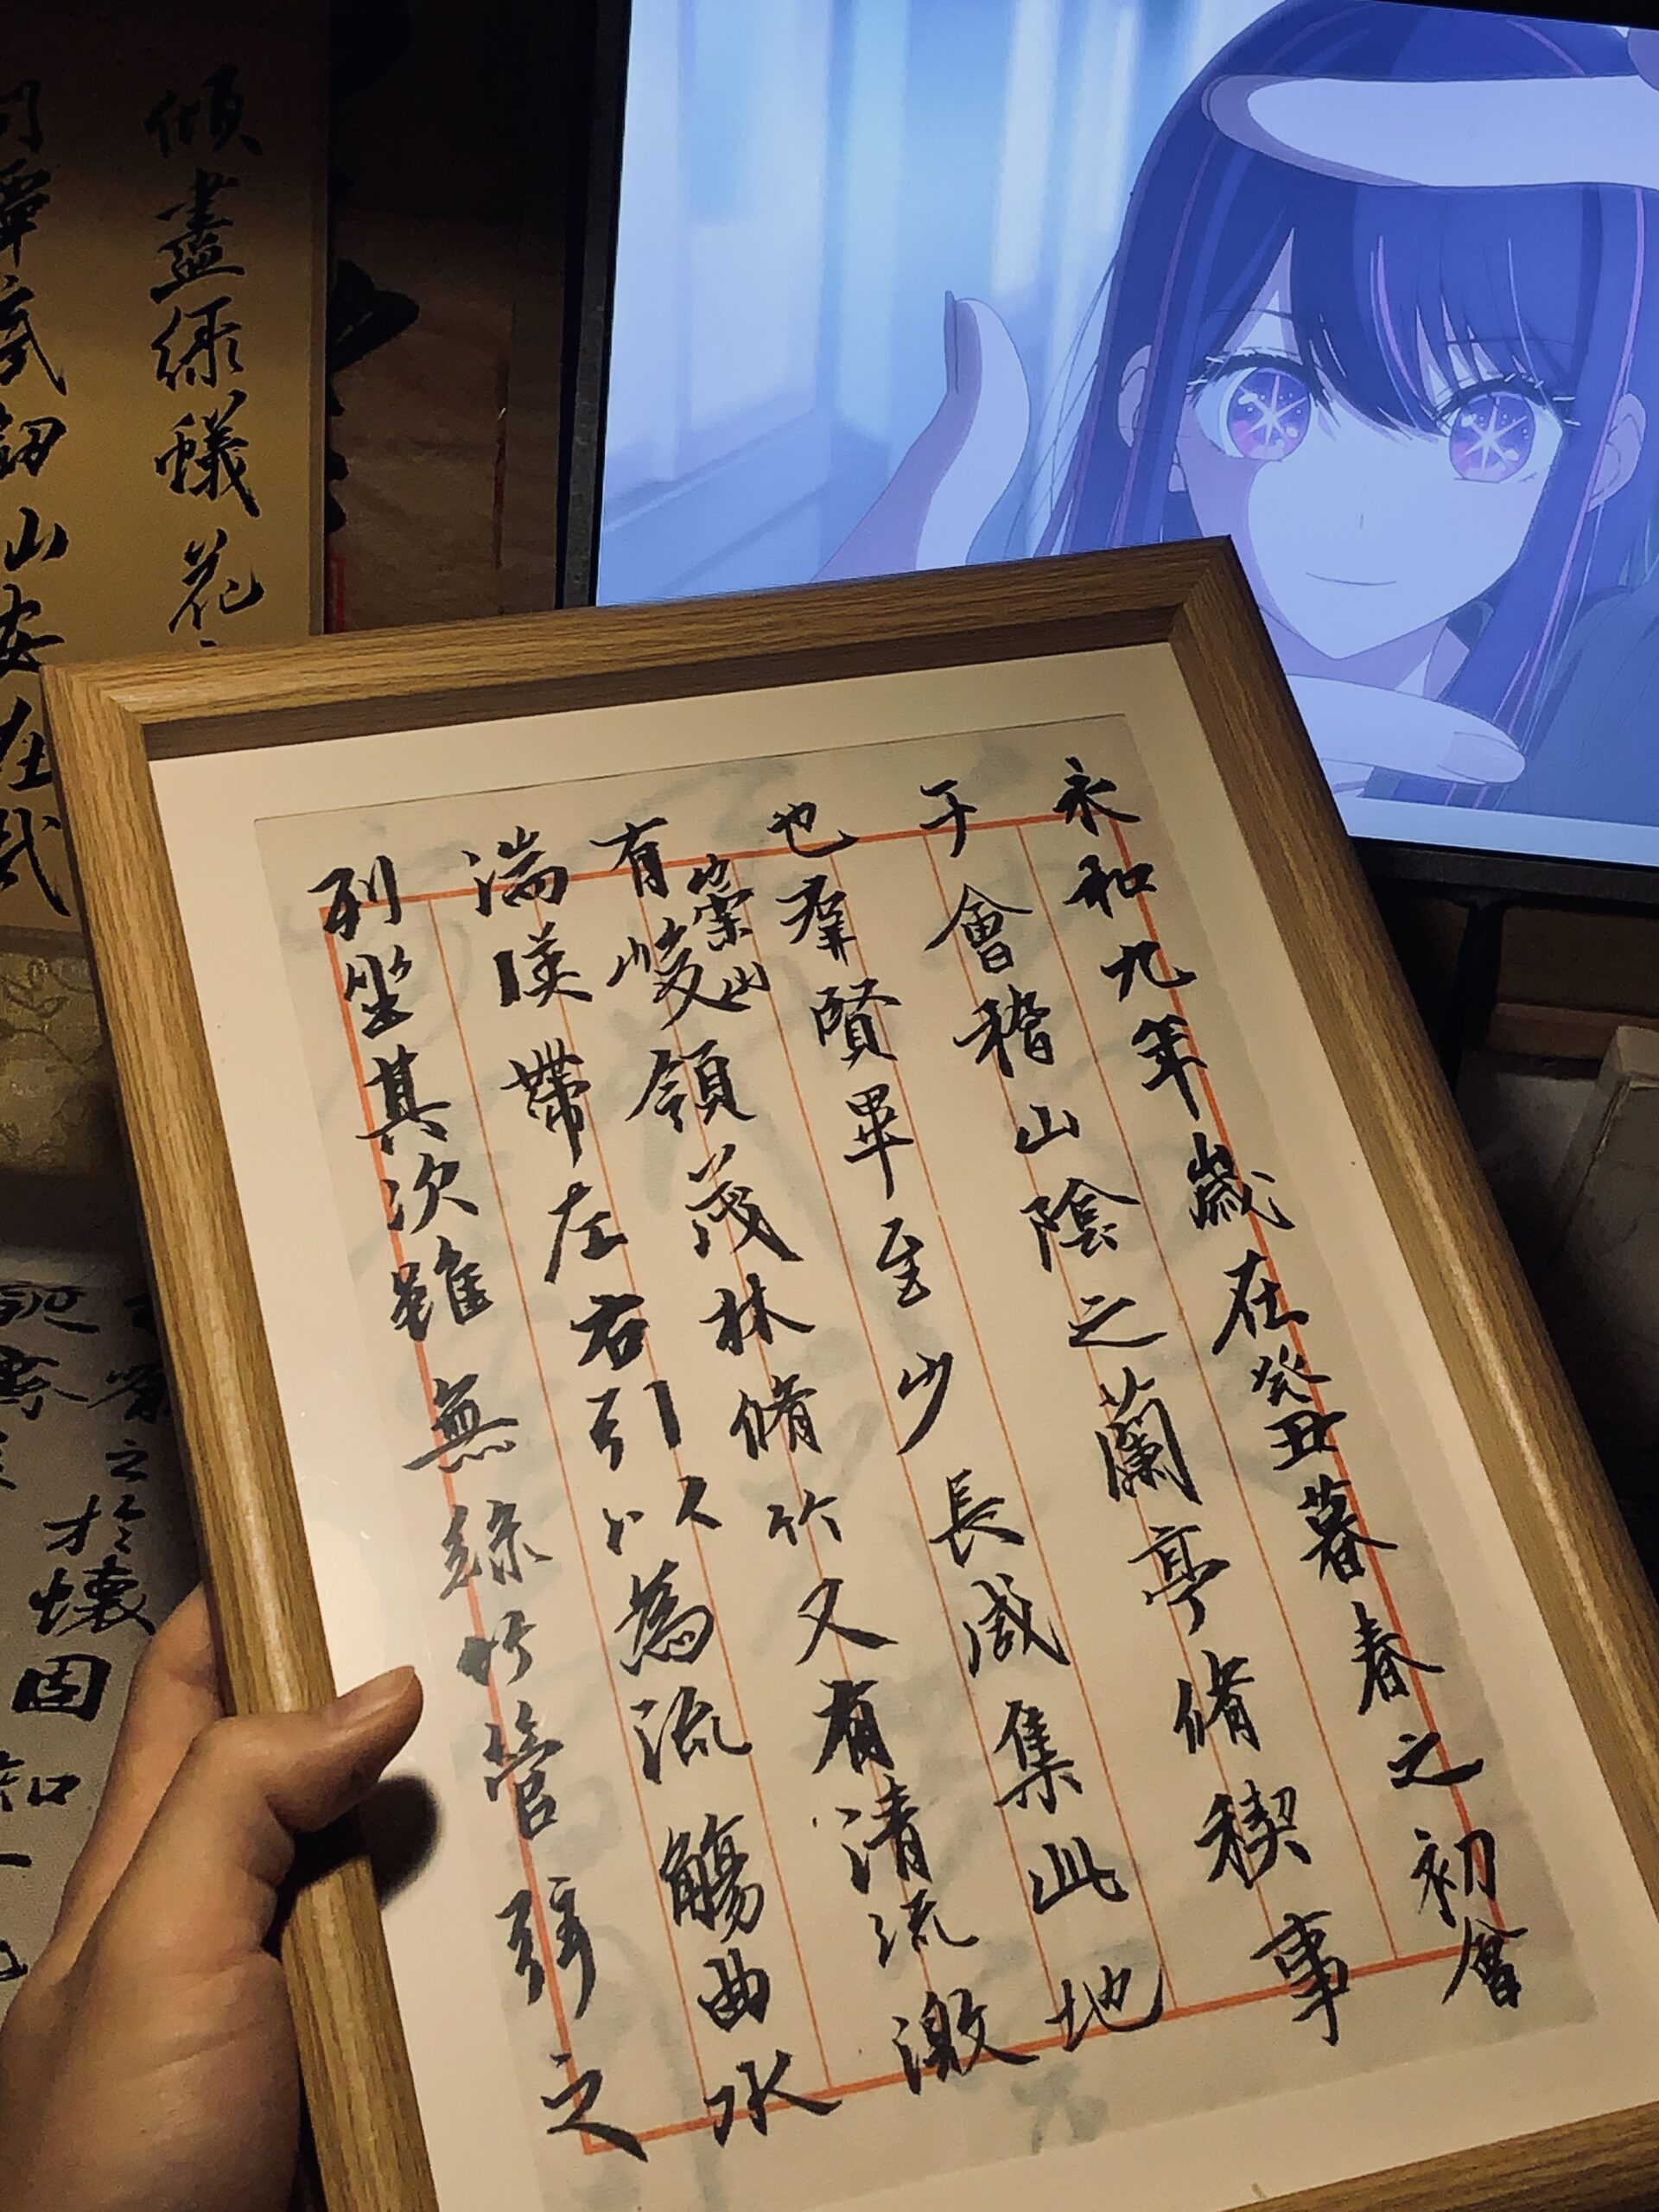 永和九年歲在癸丑暮春之初會
于會稽山陰之蘭亭脩稧事
也羣賢畢至少長咸集此地
有崇山峻領茂林脩竹又有清流激
湍暎帶左右引以為流觴曲水
列坐其次雖無絲竹管弦之
傾盡綠蟻花
山安在哉
之
於懷
固知一